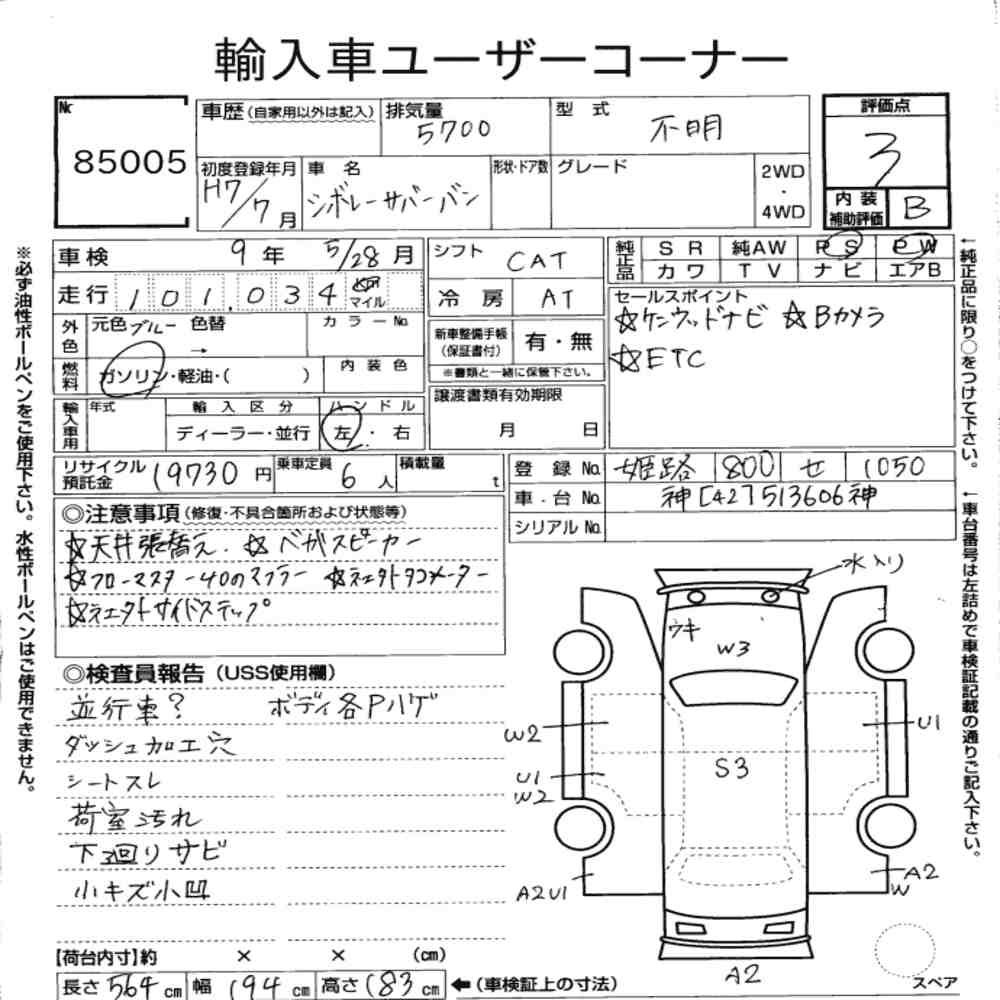 輸入車ユーザーコーナー
№ 85005
車歴(自家用以外は記入) 排気量 5700 型式 不明
評価点 3
初度登録年月 H7/7月 車名 シボレーサバーバン 形状・ドア数 グレード 2WD・4WD
内装補助評価 B
車検 9年 5/28月 シフト CAT 純正品 SR 純AW PS PW
カワ TV ナビ エアB
走行 101,034 マイル 冷房 AT
セールスポイント
☆ケンウッドナビ ☆Bカメラ
☆ETC
外色 元色 ブルー 色替 → カラーNo. 新車整備手帳(保証書付) 有・無
※書類と一緒に保管下さい。
燃料 ガソリン・軽油・( ) 内装色
譲渡書類有効期限 月 日
輸入車用 年式 輸入区分 ハンドル
ディーラー・並行 左・右
リサイクル預託金 19730円 乗車定員 6人 積載量 t
登録No. 姫路 800 せ 1050
車台No. 神[427513606神
シリアルNo.
◎注意事項(修復・不具合箇所および状態等)
☆天井張替え. ☆ベガスピーカー
☆フローマスター40のマフラー ☆ネェクトタコメーター
☆ネェクトサイドステップ
◎検査員報告(USS使用欄)
並行車? ボディ各Pハゲ
ダッシュ加工穴
シートスレ
荷室汚れ
下廻りサビ
小キズ小凹
【荷台内寸】約 × × (cm)
長さ 564 cm 幅 194 cm 高さ 183 cm ←(車検証上の寸法)
水入り
ウキ
W3
W2
U1
S3
U1
W2
A2U1
A2
W
A2
スペア
※必ず油性ボールペンをご使用下さい。水性ボールペンはご使用できません。
←純正品に限り○をつけて下さい。
←車台番号は左詰めで車検証記載の通りご記入下さい。